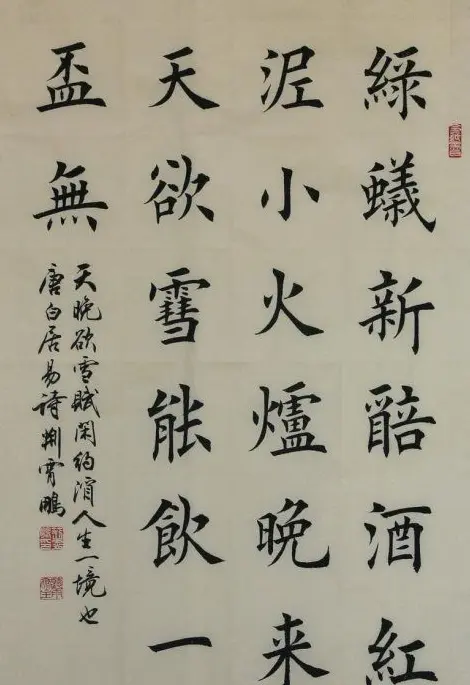 綠蟻新醅酒紅
泥小火爐晚来
天欲雪能飲一
盃無
天晚欲雪賦閑約人生一境也
唐白居易诗荆霄鹏